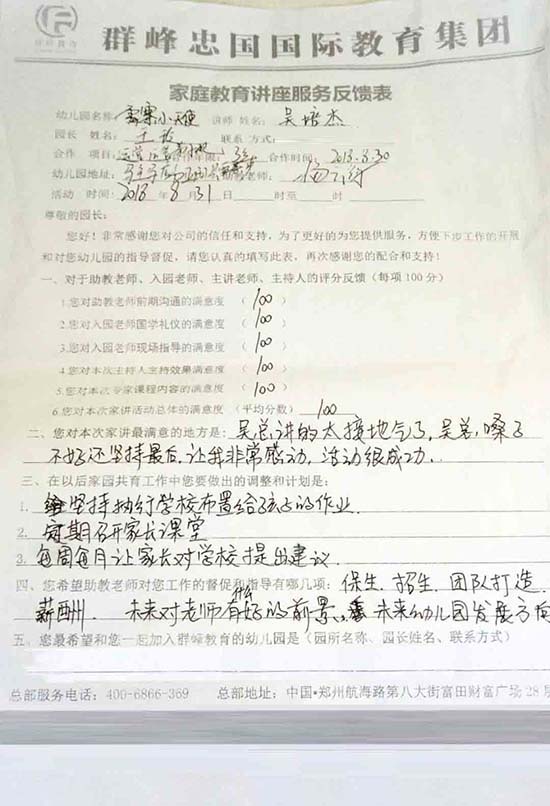 群峰忠国国际教育集团
家庭教育讲座服务反馈表
幼儿园名称: 小天使 讲师 姓名: 吴培杰
园长 姓名: 王 联系 方式:
合作 项目: 合作年限: 合作时间: 2013.8.30
幼儿园地址: 老师: 杨
活动 时间: 2013 年 8 月 31 日 时至 时
尊敬的园长:
您好!非常感谢您对公司的信任和支持,为了更好的为您提供服务,方便下步工作的开展
和对您幼儿园的指导督促,请您认真的填写此表,再次感谢您的配合和支持!
一、对于助教老师、入园老师、主讲老师、主持人的评分反馈(每项100分)
1.您对助教老师前期沟通的满意度 ( 100 )
2.您对入园老师国学礼仪的满意度 ( 100 )
3.您对入园老师现场指导的满意度 ( 100 )
4.您对本次主持人主持效果满意度 ( 100 )
5.您对本次专家课程内容的满意度 ( 100 )
6.您对本次家讲活动总体的满意度 (平均分数) 100
二、您对本次家讲最满意的地方是: 吴总讲的太接地气了,吴总,嗓子
不好还坚持最后,让我非常感动,活动很成功..
三、在以后家园共育工作中您要做出的调整和计划是:
1. 坚持执行学校布置给孩子的作业.
2. 定期召开家长课堂
3. 每周每月让家长对学校提出建议.
四、您希望助教老师对您工作的督促和指导有哪几项: 保生. 招生. 团队打造.
薪酬. 未来对老师有什么好的前景. 未来幼儿园发展方向
五、您最希望和您一起加入群峰教育的幼儿园是(园所名称、园长姓名、联系方式)
总部服务电话: 400-6866-369 总部地址: 中国·郑州航海路第八大街富田财富广场28层